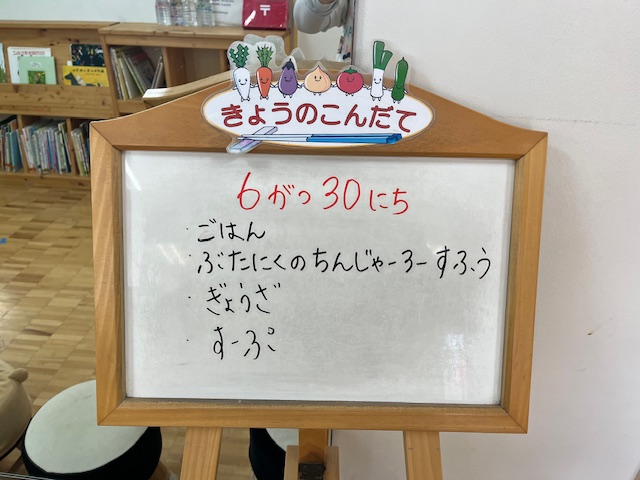 きょうのこんだて
6がつ30にち
・ごはん
・ぶたにくのちんじゃーろーすふう
・ぎょうざ
・すーぷ